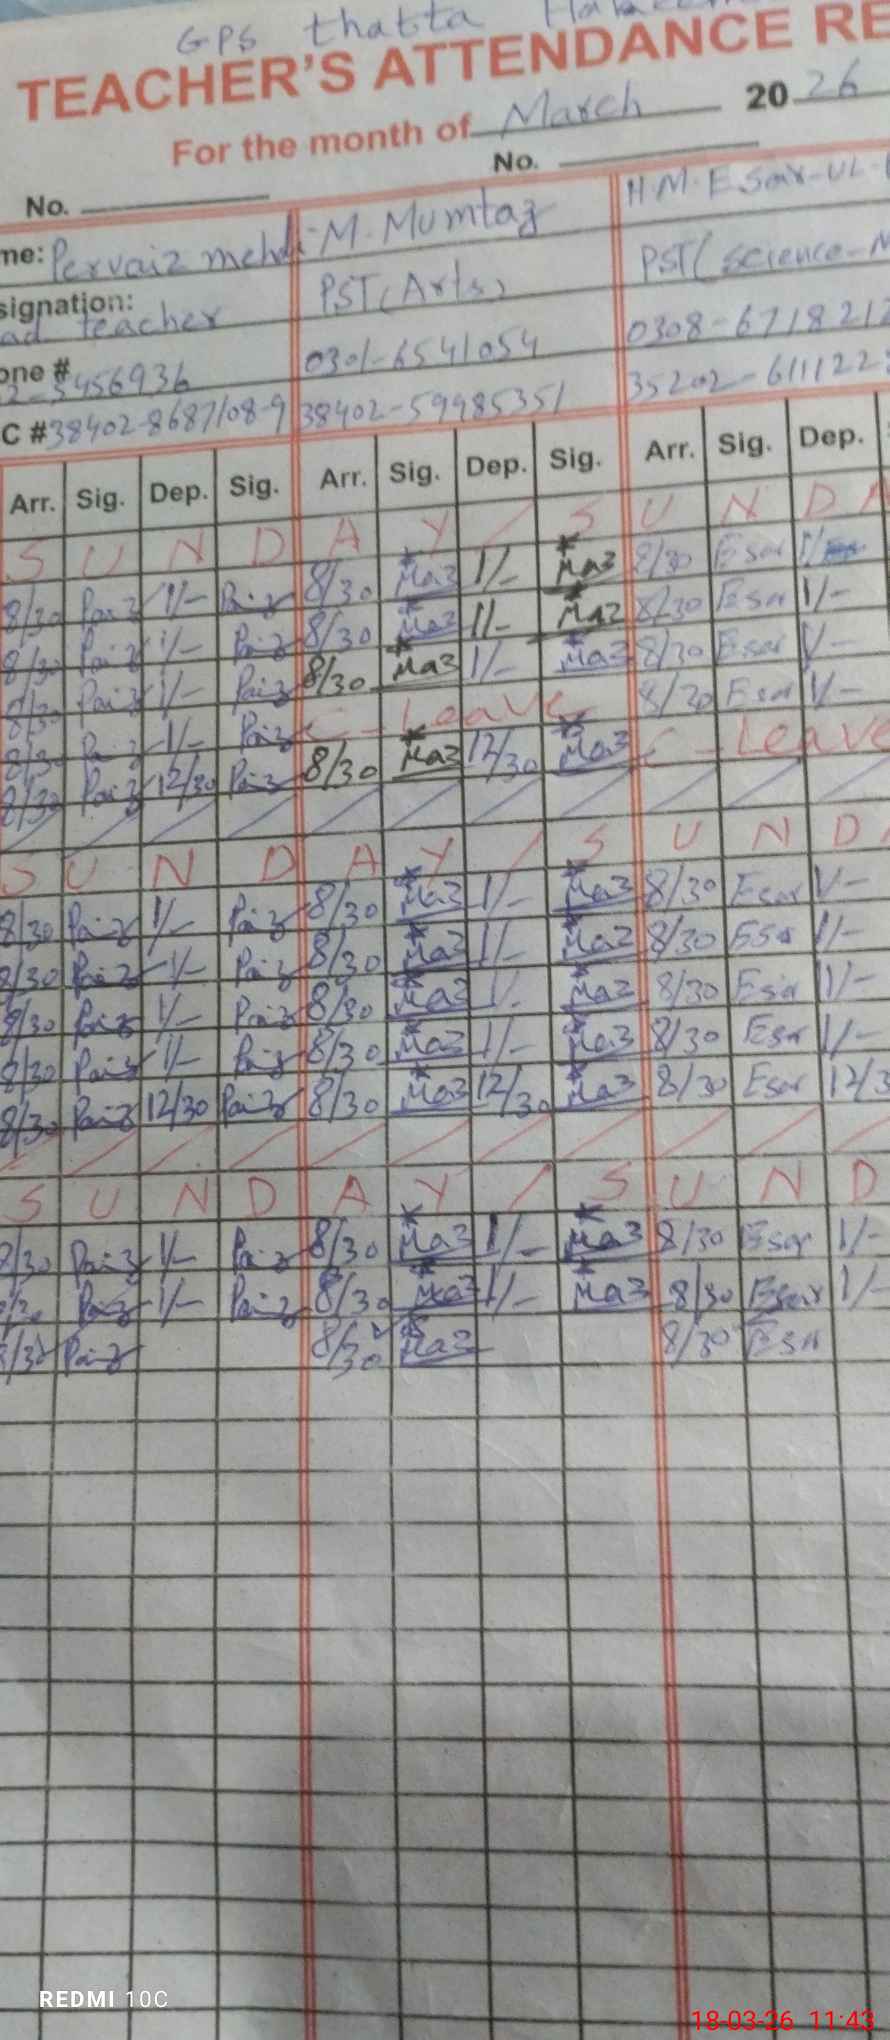 GPS thatta
TEACHER'S ATTENDANCE RE
For the month of March 2026
No. No.
me: Pervaiz mehdi M. Mumtaz H.M. Esar-UL-
signation: ad teacher PST (Arts) PST (Science-M
one # 2-5456936 0301-6541054 0308-671821
C # 38402-8687108-9 38402-59985351 35202-611122
Arr. Sig. Dep. Sig. Arr. Sig. Dep. Sig. Arr. Sig. Dep.
S U N D A Y / S U N D A
8/30 Paiz 1/- Paiz 8/30 Maz 1/- Maz 8/30 Esar 1/-
8/30 Paiz 1/- Paiz 8/30 Maz 1/- Maz 8/30 Esar 1/-
8/30 Paiz 1/- Paiz 8/30 Maz 1/- Maz 8/30 Esar 1/-
8/30 Paiz 1/- Paiz C-Leave 8/30 Esar 1/-
8/30 Paiz 12/30 Paiz 8/30 Maz 12/30 Maz C-Leave
S U N D A Y / S U N D A
8/30 Paiz 1/- Paiz 8/30 Maz 1/- Maz 8/30 Esar 1/-
8/30 Paiz 1/- Paiz 8/30 Maz 1/- Maz 8/30 Esa 1/-
8/30 Paiz 1/- Paiz 8/30 Maz 1/- Maz 8/30 Esar 1/-
8/30 Paiz 1/- Paiz 8/30 Maz 1/- Maz 8/30 Esar 1/-
8/30 Paiz 12/30 Paiz 8/30 Maz 12/30 Maz 8/30 Esar 12/3
S U N D A Y / S U N D
8/30 Paiz 1/- Paiz 8/30 Maz 1/- Maz 8/30 Esar 1/-
8/30 Paiz 1/- Paiz 8/30 Maz 1/- Maz 8/30 Esar 1/-
8/30 Paiz 8/30 Maz 8/30 Esar
REDMI 10C
18-03-26 11:43